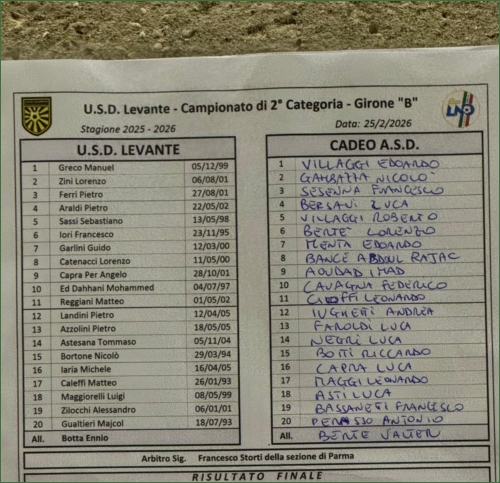 U.S.D. Levante - Campionato di 2° Categoria - Girone "B"
Stagione 2025 - 2026
Data: 25/2/2026
LND
U.S.D. LEVANTE
1 Greco Manuel 05/12/99
2 Zini Lorenzo 06/08/01
3 Ferri Pietro 27/08/01
4 Araldi Pietro 22/05/02
5 Sassi Sebastiano 13/05/98
6 Iori Francesco 23/11/95
7 Garlini Guido 12/03/00
8 Catenacci Lorenzo 11/05/00
9 Capra Per Angelo 28/10/01
10 Ed Dahhani Mohammed 04/07/97
11 Reggiani Matteo 01/05/02
12 Landini Pietro 12/04/05
13 Azzolini Pietro 18/05/05
14 Astesana Tommaso 05/11/04
15 Bortone Nicolò 29/03/94
16 Iaria Michele 16/04/05
17 Caleffi Matteo 26/01/93
18 Maggiorelli Luigi 08/05/99
19 Zilocchi Alessandro 06/01/01
20 Gualtieri Majcol 18/07/93
All. Botta Ennio
CADEO A.S.D.
1 VILLAGGI EDOARDO
2 GAMBAZZA NICOLO'
3 SESENNA FRANCESCO
4 BERSANI LUCA
5 VILLAGGI ROBERTO
6 BERTE' LORENZO
7 MENTA EDOARDO
8 BANCE ABDOUL RAJAC
9 AOUDAD IMAD
10 CAVAGNA FEDERICO
11 CIOFFI LEONARDO
12 IUGHETI ANDREA
13 FAROLDI LUCA
14 NEGRI LUCA
15 BOTTI RICCARDO
16 CAPRA LUCA
17 MAGGI LEONARDO
18 ASTI LUCA
19 BASSANETI FRANCESCO
20 ANTONIO
All. BERTE VALTER
Arbitro Sig. Francesco Storti della sezione di Parma
RISULTATO FINALE